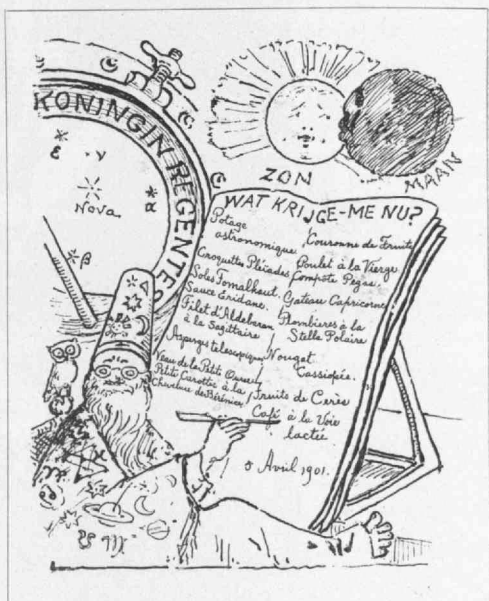 KONINGIN REGENTES
ε ν
Nova α
β
ZON
MAAN
WAT KRIJGE-ME NU?
Potage
astronomique
Croquette Pleïades
Sole Fomalhaut.
Sauce Eridane.
Filet d'Aldebaran
à la Sagittaire
Asperges telescopique
Veau de la Petite Ourse
Petite Carotte à la
Chevelure de Bérénice
Couronne de Fruits
Poulet à la Vierge
Compôte Pegase.
Gateau Capricorne
Plombieres à la
Stella Polaire
Nougat
Cassiopée.
Fruits de Cerès
Café à la Voie
lactée
Avril 1901.